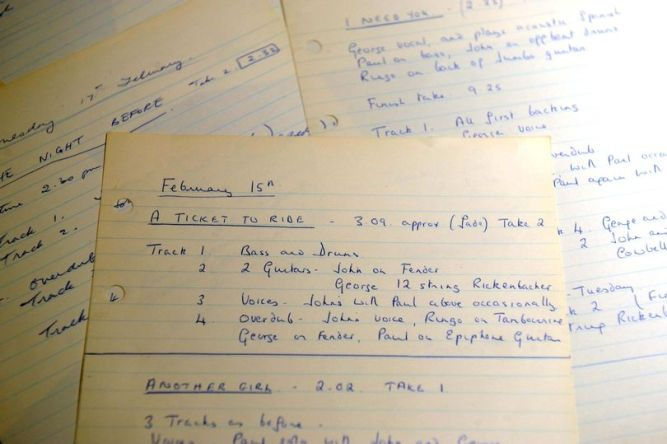 17th February.
THE NIGHT BEFORE Take 2. 2.33
2.30 pm
Track 1.
Track 2.
Overdub
Track 3
Track
I NEED YOU
George vocal, and plays acoustic Spanish
Paul on bass, John on offbeat drums
Ringo on back of Jumbo guitar
Finish take. 9.25
Track 1. All first backing
George voice
overdub
with Paul
Paul again with
4. George and
2 John and
Cowbell
- Tuesday
2
Rickenb
February 15th.
A TICKET TO RIDE - 3.09. approx (fade) Take 2
Track 1 Bass and Drums
2 2 Guitars - John on Fender
George 12 string Rickenbacher
3 Voices - John's with Paul above occasionally
4 Overdub - John's voice, Ringo on Tambourine
George on Fender, Paul on Epiphone Guitar
ANOTHER GIRL - 2.02 TAKE 1
3 Tracks as before.
Voices Paul solo with John and George